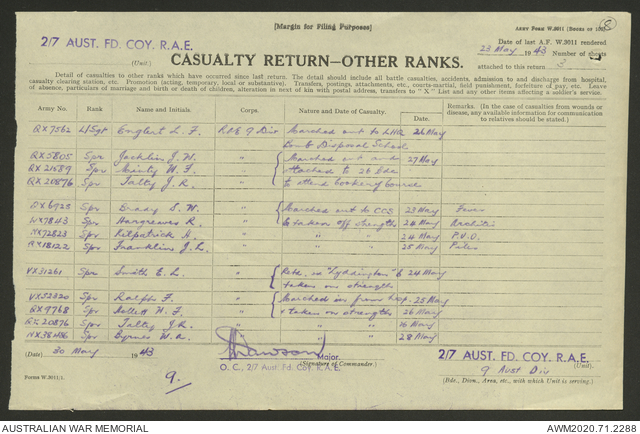 [Margin for Filing Purposes]
ARMY FORM W.3011
8
2/7 AUST. FD. COY. R.A.E.
(Unit.)
Date of last A.F. W.3011 rendered
23 May 1943 Number of sheets
attached to this return 3
CASUALTY RETURN—OTHER RANKS.
Detail of casualties to other ranks which have occurred since last return. The detail should include all battle casualties, accidents, admission to and discharge from hospital,
casualty clearing station, etc. Promotion (acting, temporary, local or substantive). Transfers, postings, attachments, etc., courts-martial, field punishment, forfeiture of pay, etc. Leave
of absence, particulars of marriage and birth or death of children, alteration in next of kin with postal address, transfers to "X" List and any other items affecting a soldier's service.
Army No. Rank Name and Initials. Corps. Nature and Date of Casualty. Date. Remarks. (In the case of casualties from wounds or disease, any available information for communication to relatives should be stated.)
QX7562 L/Sgt Englert L. F. RAE 9 Div Marched out to LHQ 26 May
Bomb Disposal School
QX5805 Spr Jacklin J. W. " Marched out and 27 May
QX21589 Spr W. F. " Attached to 26 Bde
QX20876 Spr Talty J. R. " to attend course
6923 Spr Brady S. W. " Marched out to CCS 23 May Fever
7843 Spr Hargreaves R. " & taken off strength 24 May
NX72823 Spr Kilpatrick H. " " " 24 May P.U.O.
18122 Spr Franklin J. L. " " " 25 May Piles
VX51261 Spr Smith E. L. " 24 May
taken on strength
VX52820 Spr Ralph F. " Marched in from hosp. 25 May
QX9768 Spr W. F. " & taken on strength 26 May
QX20876 Spr Talty J. R. " " " 16 May
NX38486 Spr Byrnes W. A. " " " 28 May
(Date) 30 May 1943
Dawson Major.
(Signature of Commander.)
O. C., 2/7 AUST. FD. COY. R.A.E.
2/7 AUST. FD. COY. R.A.E.
(Unit).
9 Aust Div
(Bde., Divn., Area, etc., with which Unit is serving.)
Forms W.3011/1.
9.
AUSTRALIAN WAR MEMORIAL AWM2020.71.2288